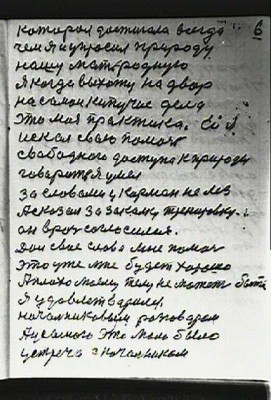 которая доставала всегда 6
чем я упросил природу
нашу мать родную
Я когда выхожу на двор
на самом кипучие дела
это моя практика. Её я
искал свою помощь
свободного доступа к природе
говорить я умел
за словами у карман не лез
А сказал за закалку тренировку.
он врач согласился.
Дал свое слово мне помоч
это уже мне будет хорошо
А плохо моему телу не может быть
Я удовлетварился
начальниковым разговором
А у самого это мало было
встреча з начальником